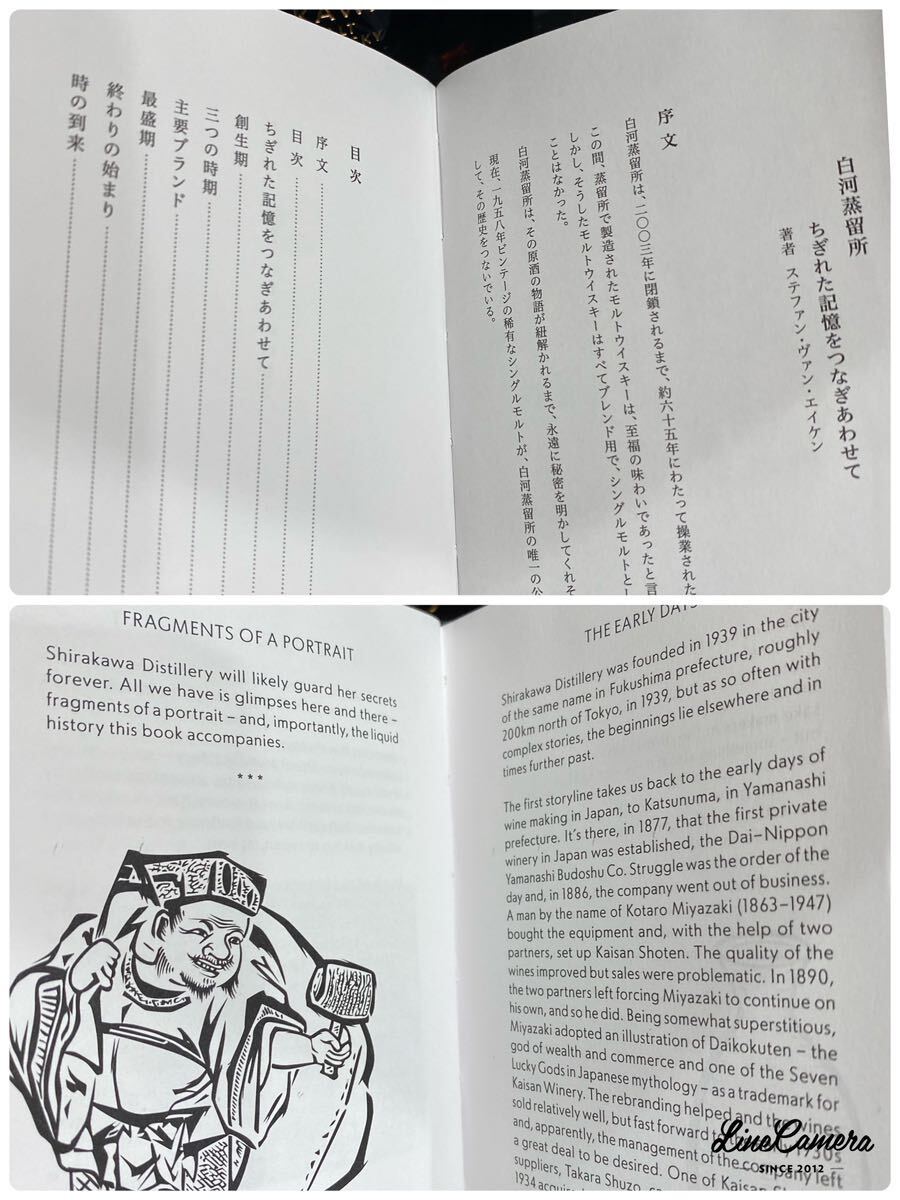 白河蒸留所
ちぎれた記憶をつなぎあわせて
著者 ステファン・ヴァン・エイケン
序文
白河蒸留所は、二〇〇三年に閉鎖されるまで、約六十五年にわたって操業された
この間、蒸留所で製造されたモルトウイスキーは、至福の味わいであったと言
しかし、そうしたモルトウイスキーはすべてブレンド用で、シングルモルトとし
ことはなかった。
白河蒸留所は、その原酒の物語が紐解かれるまで、永遠に秘密を明かしてくれそ
現在、一九五八年ビンテージの稀有なシングルモルトが、白河蒸留所の唯一の公
して、その歴史をつないでいる。
目次
序文
目次
ちぎれた記憶をつなぎあわせて
創生期
三つの時期
主要ブランド
最盛期
終わりの始まり
時の到来
FRAGMENTS OF A PORTRAIT
Shirakawa Distillery will likely guard her secrets
forever. All we have is glimpses here and there –
fragments of a portrait – and, importantly, the liquid
history this book accompanies.
***
THE EARLY DAYS
Shirakawa Distillery was founded in 1939 in the city
of the same name in Fukushima prefecture, roughly
200km north of Tokyo, in 1939, but as so often with
complex stories, the beginnings lie elsewhere and in
times further past.
The first storyline takes us back to the early days of
wine making in Japan, to Katsunuma, in Yamanashi
prefecture. It's there, in 1877, that the first private
winery in Japan was established, the Dai-Nippon
Yamanashi Budoshu Co. Struggle was the order of the
day and, in 1886, the company went out of business.
A man by the name of Kotaro Miyazaki (1863–1947)
bought the equipment and, with the help of two
partners, set up Kaisan Shoten. The quality of the
wines improved but sales were problematic. In 1890,
the two partners left forcing Miyazaki to continue on
his own, and so he did. Being somewhat superstitious,
Miyazaki adopted an illustration of Daikokuten – the
god of wealth and commerce and one of the Seven
Lucky Gods in Japanese mythology – as a trademark for
Kaisan Winery. The rebranding helped and the wines
sold relatively well, but fast forward to 1930s
and, apparently, the management of the company left
a great deal to be desired. One of Kaisan
suppliers, Takara Shuzo,
1934
LineCamera
SINCE 2012